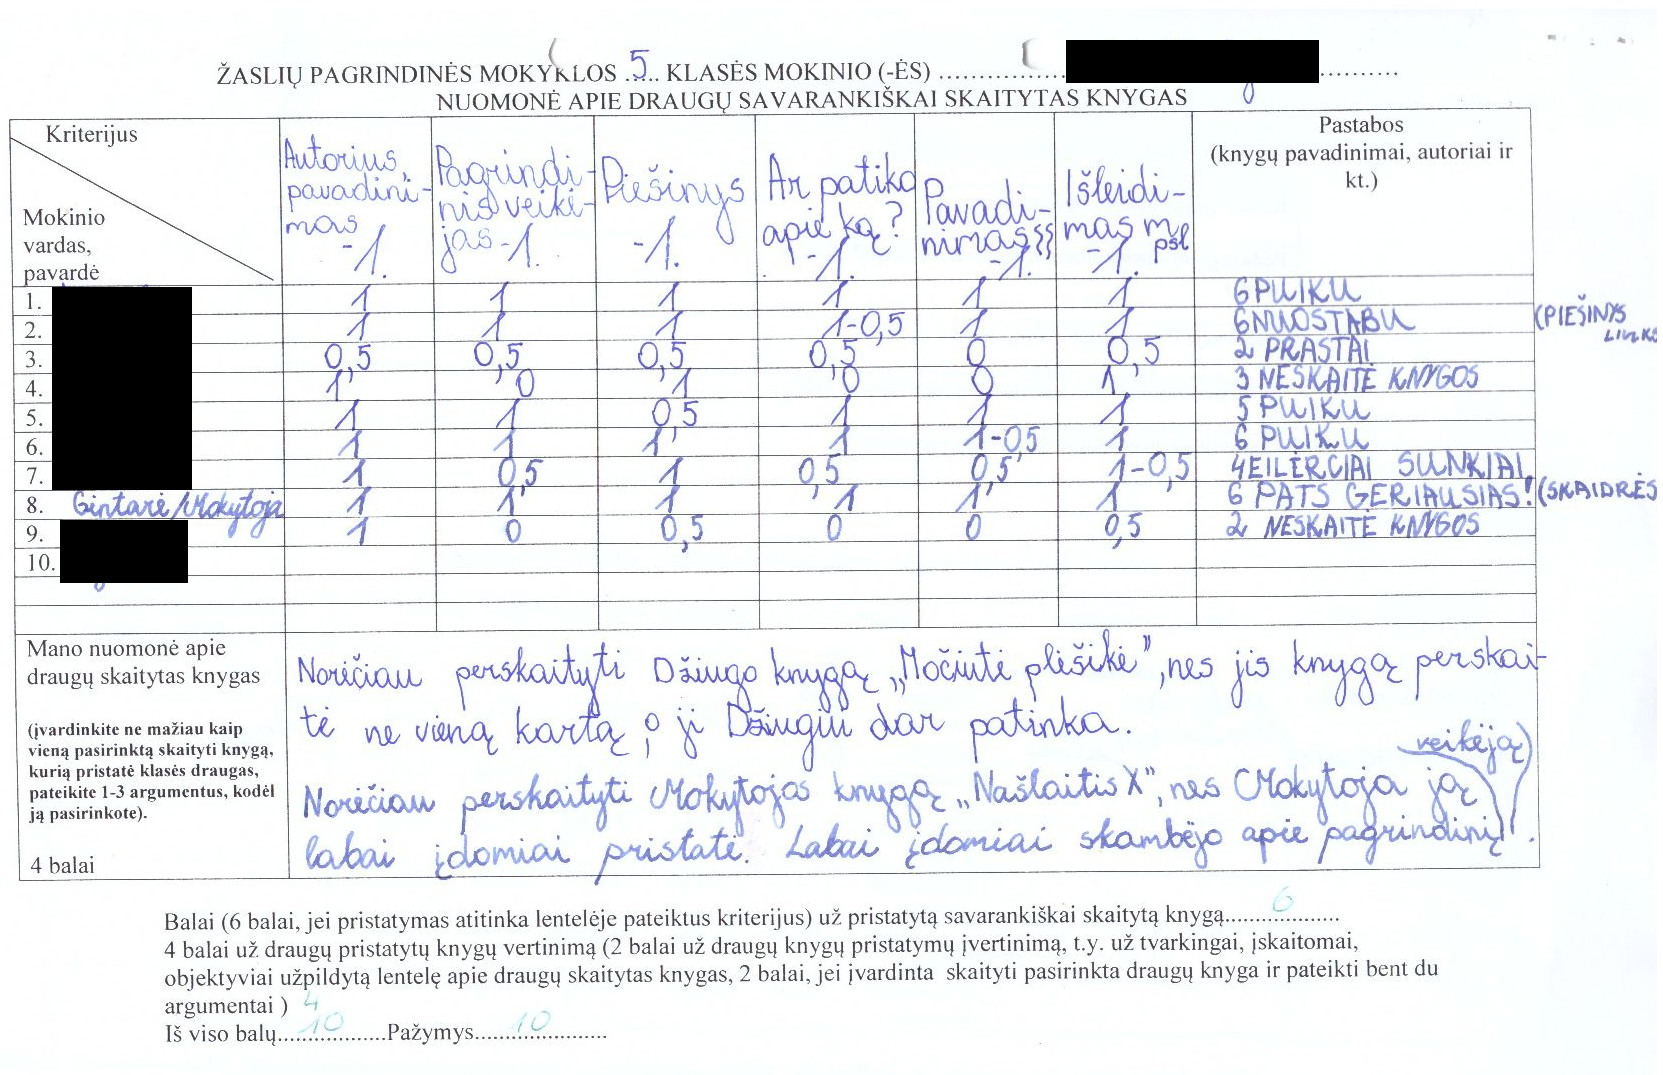 ŽASLIŲ PAGRINDINĖS MOKYKLOS .5.. KLASĖS MOKINIO (-ĖS) ................
NUOMONĖ APIE DRAUGŲ SAVARANKIŠKAI SKAITYTAS KNYGAS
Kriterijus
Mokinio
vardas,
pavardė
Autorius,
pavadini-
mas
-1.
Pagrindi-
nis veikė-
jas -1.
Piešinys
-1.
Ar patiko
apie ką?
-1.
Pavadi-
nimas
-1.
Išleidi-
mas m
psl
-1.
Pastabos
(knygų pavadinimai, autoriai ir
kt.)
1. 1 1 1 1 1 1 6 PUIKU
2. 1 1 1 1-0,5 1 1 6 NUOSTABU (PIEŠINYS
3. 0,5 0,5 0,5 0,5 0 0,5 2 PRASTAI
4. 1 0 1 0 0 1 3 NESKAITĖ KNYGOS
5. 1 1 0,5 1 1 1 5 PUIKU
6. 1 1 1 1 1-0,5 1 6 PUIKU
7. 1 0,5 1 0,5 0,5 1-0,5 4 EILĖRČIAI SUNKIAI
8. Gintarė/Mokytoja 1 1 1 1 1 1 6 PATS GERIAUSIAS! (SKAIDRĖS
9. 1 0 0,5 0 0 0,5 2 NESKAITĖ KNYGOS
10.
Mano nuomonė apie
draugų skaitytas knygas
(įvardinkite ne mažiau kaip
vieną pasirinktą skaityti knygą,
kurią pristatė klasės draugas,
pateikite 1-3 argumentus, kodėl
ją pasirinkote).
4 balai
Norėčiau perskaityti Džiugo knygą „Močiutė plėšikė", nes jis knygą perskai-
tė ne vieną kartą, o ji Džiugui dar patinka.
Norėčiau perskaityti Mokytojos knygą „Našlaitis X", nes Mokytoja ją
labai įdomiai pristatė. Labai įdomiai skambėjo apie pagrindinį veikėją.
Balai (6 balai, jei pristatymas atitinka lentelėje pateiktus kriterijus) už pristatytą savarankiškai skaitytą knygą.......6.......
4 balai už draugų pristatytų knygų vertinimą (2 balai už draugų knygų pristatymų įvertinimą, t.y. už tvarkingai, įskaitomai,
objektyviai užpildytą lentelę apie draugų skaitytas knygas, 2 balai, jei įvardinta skaityti pasirinkta draugų knyga ir pateikti bent du
argumentai ) 4
Iš viso balų....10....Pažymys....10....